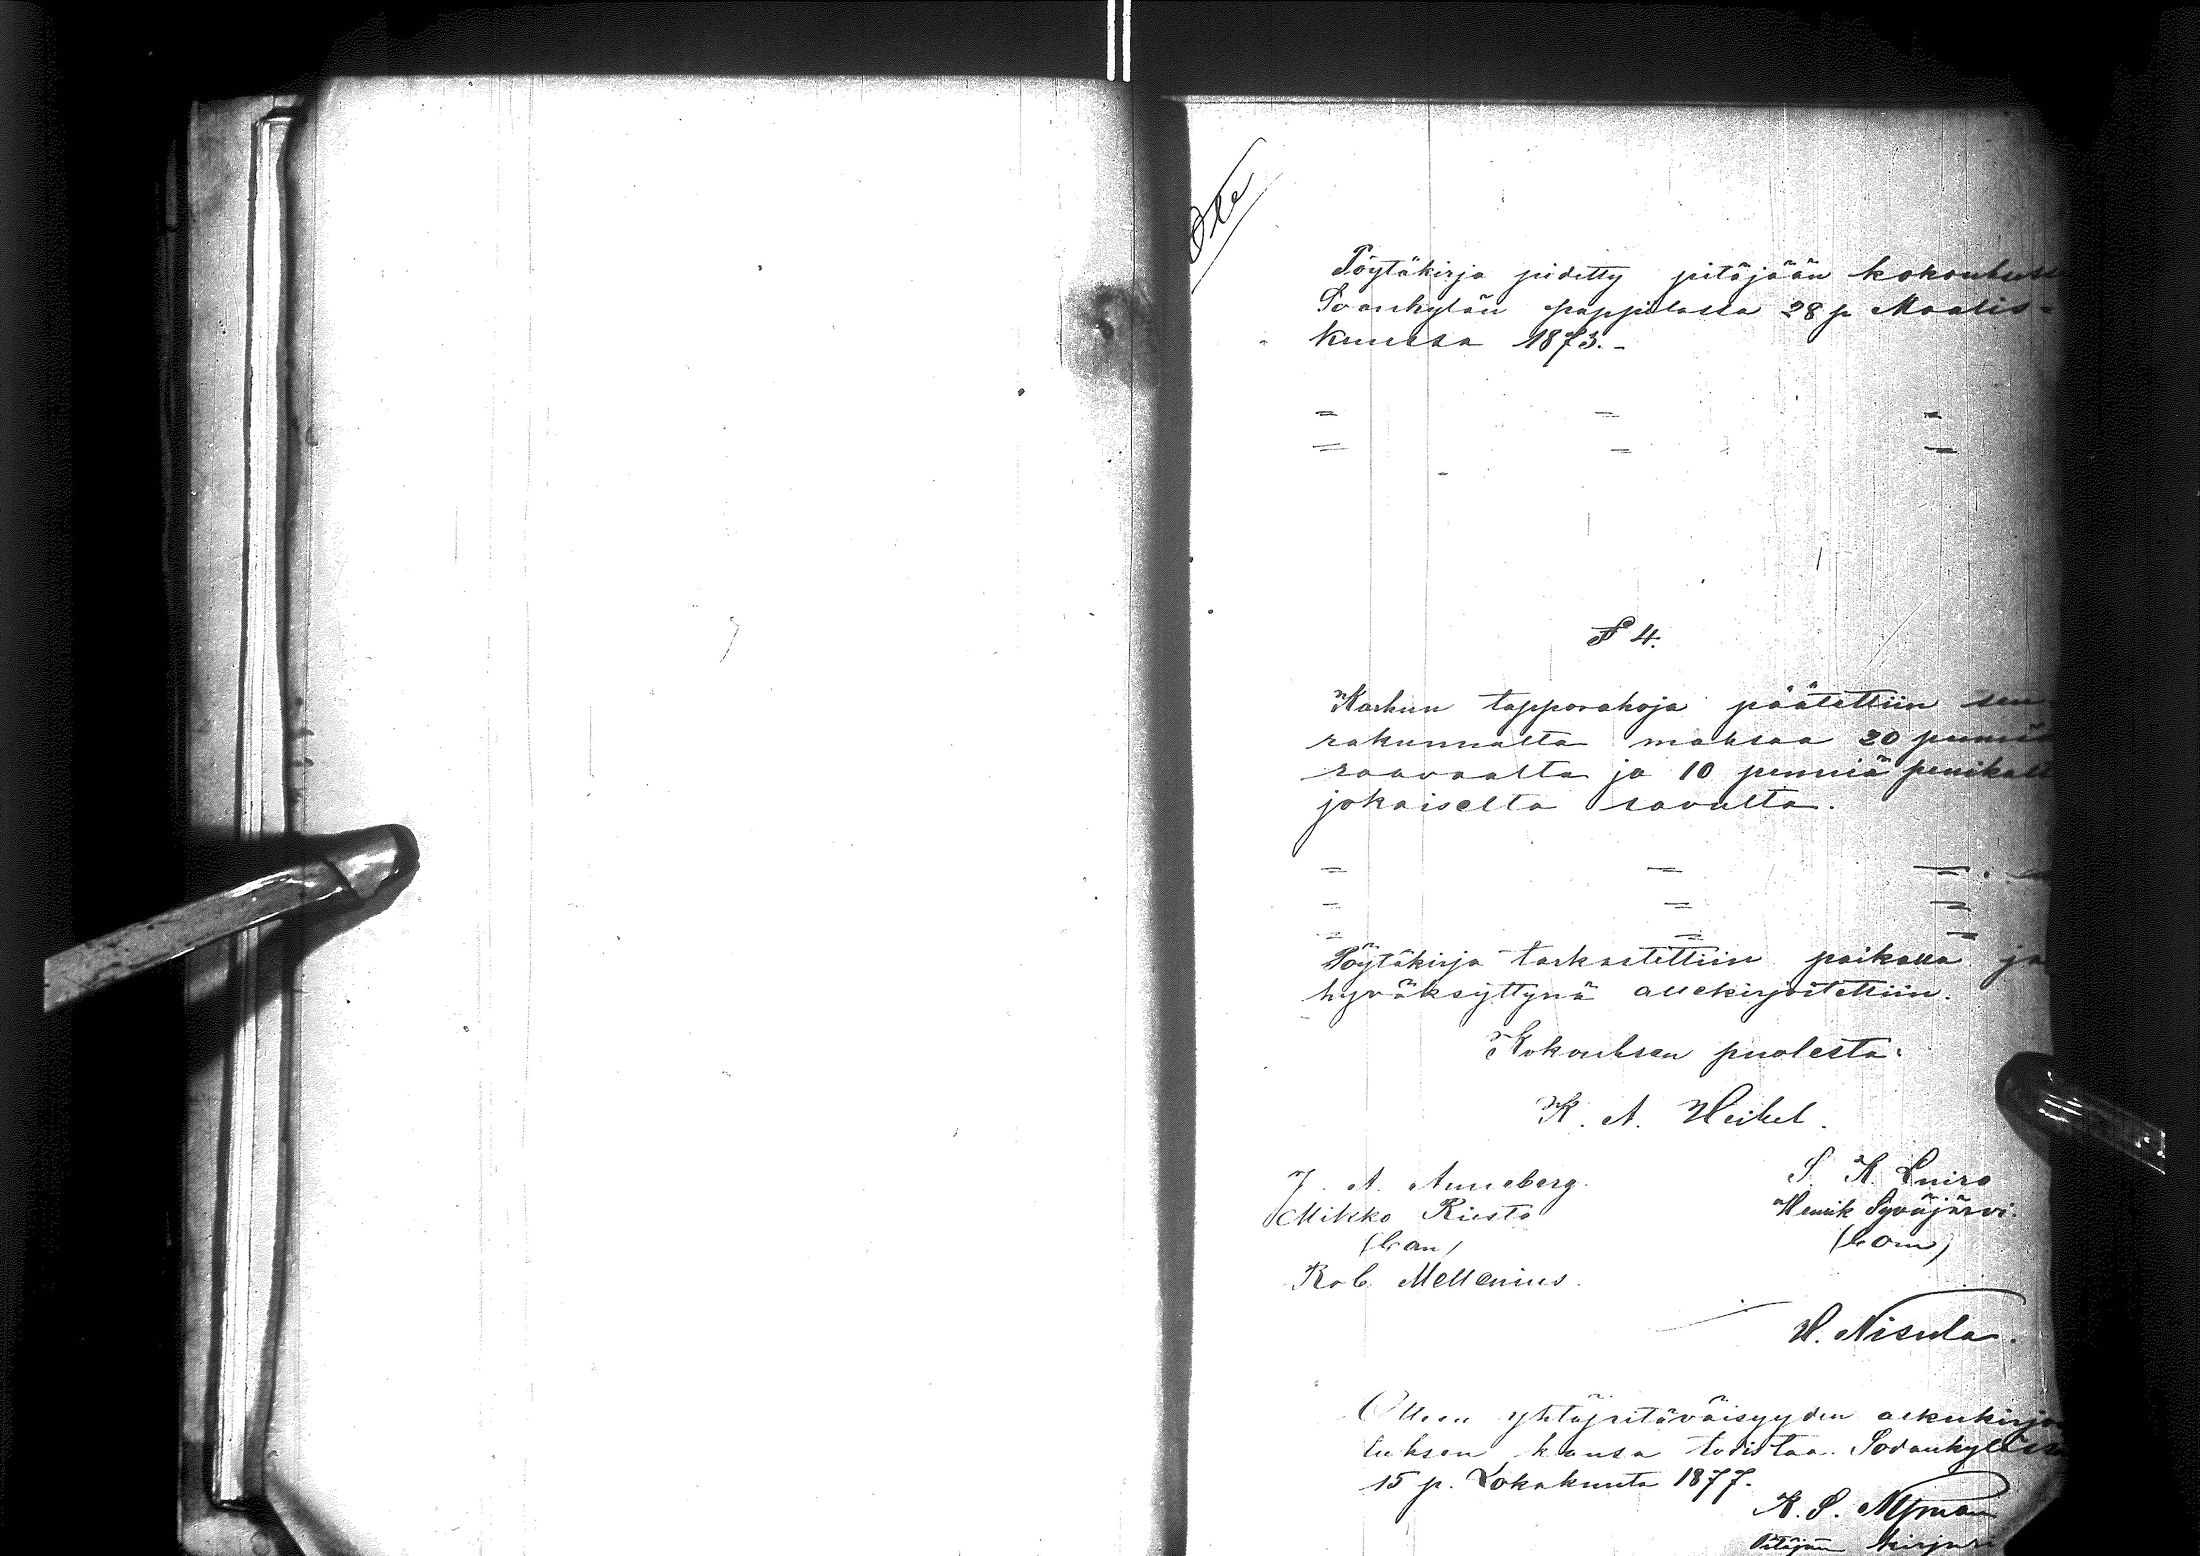 Ote
Pöytäkirja pidetty pitäjään kokouksess
Soankylän pappilassa 28 p Maalis-
kuussa 1873.-
§ 4.
Karhun tapporahoja päätettiin seu
rakunnalta maksaa 20 penniä
raavaalta ja 10 penniä penikalt
jokaiselta savulta.
Pöytäkirja tarkastettiin paikalla ja
hyväksyttynä allekirjoitettiin.
Kokouksen puolesta:
K. A. Heikel.
J. A. Anneberg. S. K. Luiro
Mikko Riesto Henrik Syväjärvi.
Rob Mellenius.
H. Nisula.
Otteen yhtäpitäväisyyden alkukirjo
tuksen kanssa todistaa. Sodankylässä
15 p. Lokakuuta 1877.
K. S. Nyman
Pitäjään kirjuri